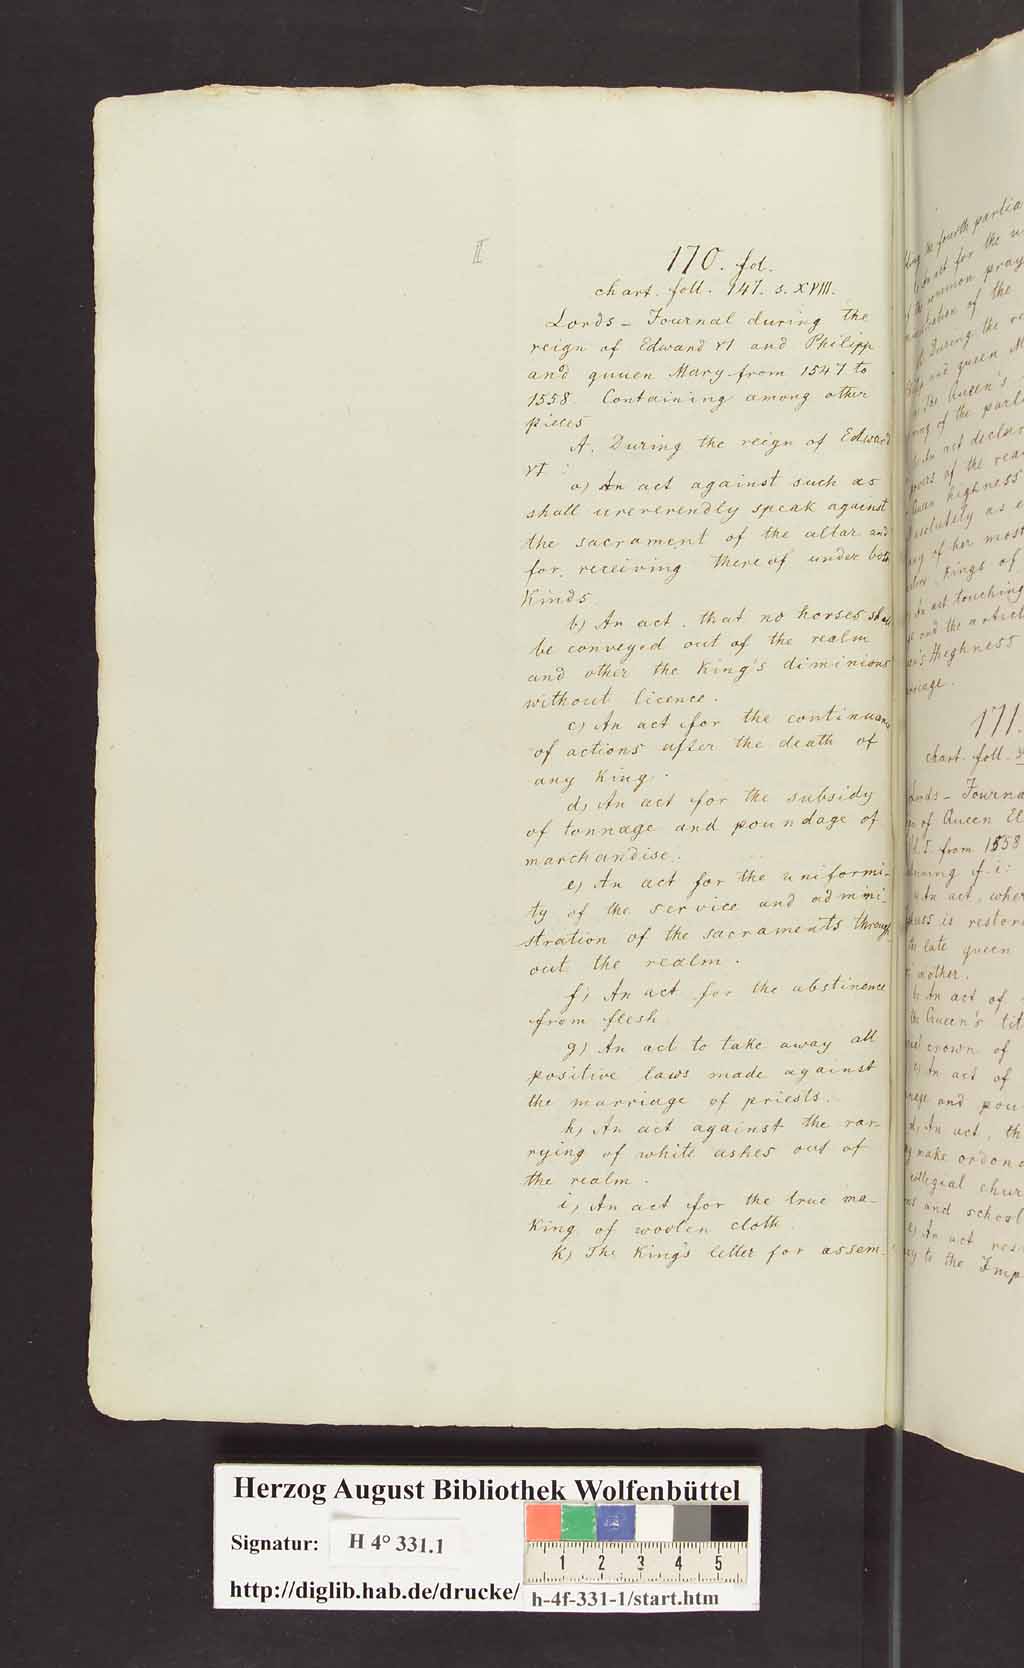 II
170. fol.
chart. foll. 147. s. XVIII.
Lords - Journal during the
reign of Edward VI and Philipp
and quuen Mary from 1547 to
1558. Containing among other
pieces
A. During the reign of Edward
VI:
a) An act against such as
shall ureverendly speak against
the sacrament of the altar and
for receiving thereof under both
Kinds
b) An act, that no horses shall
be conveyed out of the realm
and other the King's diminions
without licence.
c) An act for the continuance
of actions after the death of
any King.
d) An act for the subsidy
of tonnage and poundage of
marchandise.
e) An act for the uniformi-
ty of the service and admini-
stration of the sacraments through
out the realm.
f) An act for the abstinence
from flesh
g) An act to take away all
positive laws made against
the marriage of priests.
h) An act against the rar-
rying of white ashes out of
the realm.
i) An act for the true ma-
King of woolen cloth.
k) The King's letter for assem-
the fourth parlia
act for the u
common pray
of the
During the re
and queen M
The Queen's
of the parl
An act declar
of the rea
highness
as e
of her most
Kings of
An act touching
and the articl
Heghness
171.
chart. foll. 3
Lords - Journa
of Queen El
from 1558
f. i:
An act, wher
is restor
late queen
mother.
b) An act of
the Queen's tit
crown of
c) An act of
and poun
d) An act, th
make ordona
collegial chur
and school
e) An act res
to the Imp
Herzog August Bibliothek Wolfenbüttel
Signatur: H 4° 331.1
1 2 3 4 5
http://diglib.hab.de/drucke/ h-4f-331-1/start.htm